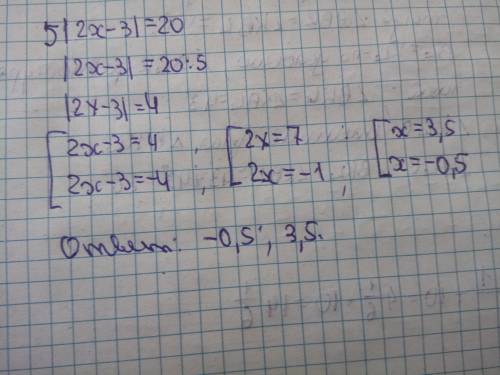 5|2x-3|=20
|2x-3|=20:5
|2x-3|=4
[2x-3=4 [2x=7 [x=3,5
2x-3=-4 ; 2x=-1 ; x=-0,5
Ответ: -0,5; 3,5.